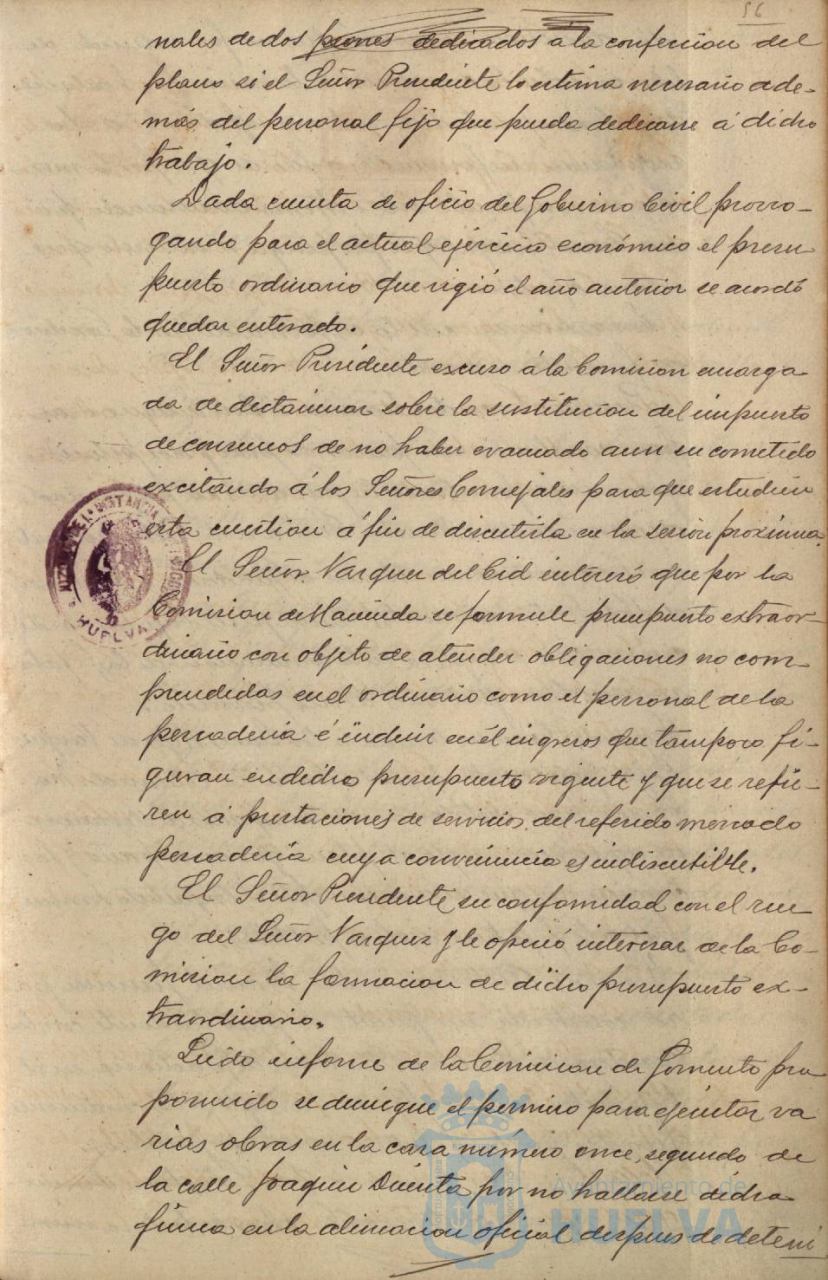 56
nales de dos peones dedicados á la confeccion del
plano si el Señor Presidente lo estima necesario ade-
más del personal fijo que pueda dedicarse á dicho
trabajo.
Dada cuenta de oficio del Gobierno Civil prorro-
gando para el actual ejercicio económico el presu
puesto ordinario que rigió el año anterior se acordó
quedar enterado.
El Señor Presidente escuso á la Comision encarga
da de dictaminar sobre la sustitucion del impuesto
de consumos de no haber evacuado aun su cometido
excitando á los Señores Concejales para que estudien
esta cuestion á fin de discutirla en la sesion proxima.
El Señor Vazquez del Cid interesó que por la
Comision de Hacienda se formule presupuesto extraor-
dinario con objeto de atender obligaciones no com-
prendidas en el ordinario como el personal de la
pescaderia é incluir en él ingresos que tampoco fi-
guran en dicho presupuesto vigente y que se refie-
ren á prestaciones de servicios del referido mercado
pescaderia cuya conveniencia es indiscutible.
El Señor Presidente su conformidad con el rue
go del Señor Vazquez y le ofreció interesar de la Co-
mision la formacion de dicho presupuesto ex-
traordinario.
Leido informe de la Comision de Fomento pro
poniendo se deniegue el permiso para ejecutar va
rias obras en la casa número once, segundo de
la calle Joaquin Dicenta por no hallarse dicha
finca en la alineacion oficial despues de deteni
HUELVA
Ayuntamiento de
HUELVA